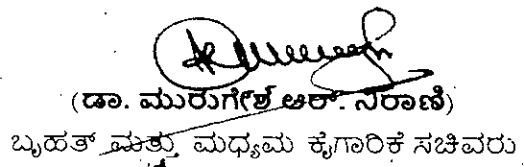 (ಡಾ. ಮುರುಗೇಶ್ ಆರ್. ನಿರಾಣಿ)
ಬೃಹತ್ ಮತ್ತು ಮಧ್ಯಮ ಕೈಗಾರಿಕೆ ಸಚಿವರು